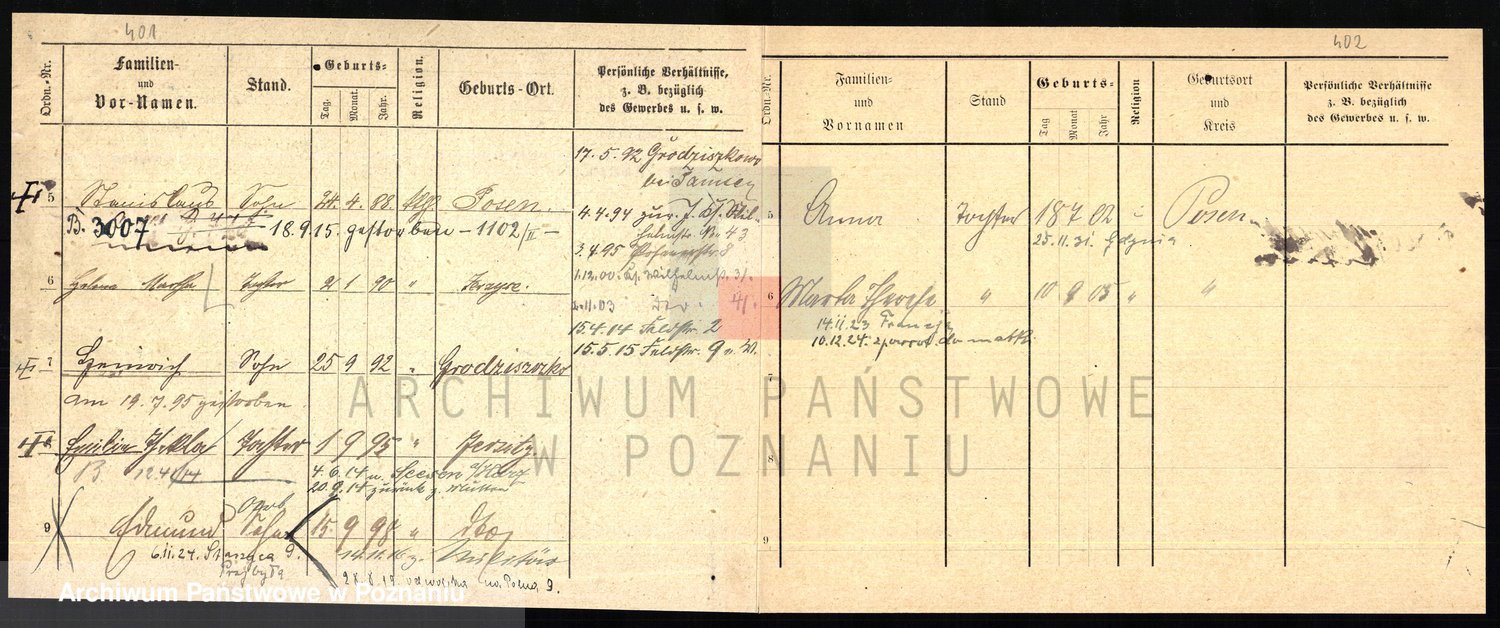 401
Ordn.-Nr.
Familien-
und
Vor-Namen.
Stand.
Geburts-
Tag.
Monat.
Jahr.
Religion.
Geburts-Ort.
Persönliche Verhältnisse,
z. B. bezüglich
des Gewerbes u. s. w.
17. 5. 92 Grodziszkowo
bei
5 Stanislaus Sohn 24. 4. 88 kthl Posen.
B. 3607 18.9.15. gestorben - 1102/II -
4.4.94 zur.
43
3.4.95 8
6 Helena Martha Tochter 2 1 90 "
1.12.00 Wilhelmst. 31.
2.11.03 41.
15.4.14 Feldstr. 2
15.5.15 Feldstr. 9
7 Heinrich Sohn 25 9 92 " Grodziszczko
am 19. 7. 95 gestorben.
8 Thekla Tochter 1 9 95 " Jersitz.
B 12.4.14
4.6.14 n. Seesen a/Harz
20.9.14 zurück z. Mutter
9 Edmund Sohn 15. 9 98 " dto
6.11.24. 9.
Przybyła
14.11.16 z. Militär
28.8.19 z wojska na Polną 9.
402
Ordn.-Nr.
Familien-
und
Vornamen
Stand
Geburts-
Tag
Monat
Jahr
Religion
Geburtsort
und
Kreis
Persönliche Verhältnisse
z. B. bezüglich
des Gewerbes u. s. w.
5 Anna Tochter 18 7 02 " Posen
25.11.31. Gdynia
6 Marta " 10 9 05 " "
14.11.23 Francja
10.12.24. do matki
7
8
9
ARCHIWUM PAŃSTWOWE
W POZNANIU
Archiwum Państwowe w Poznaniu